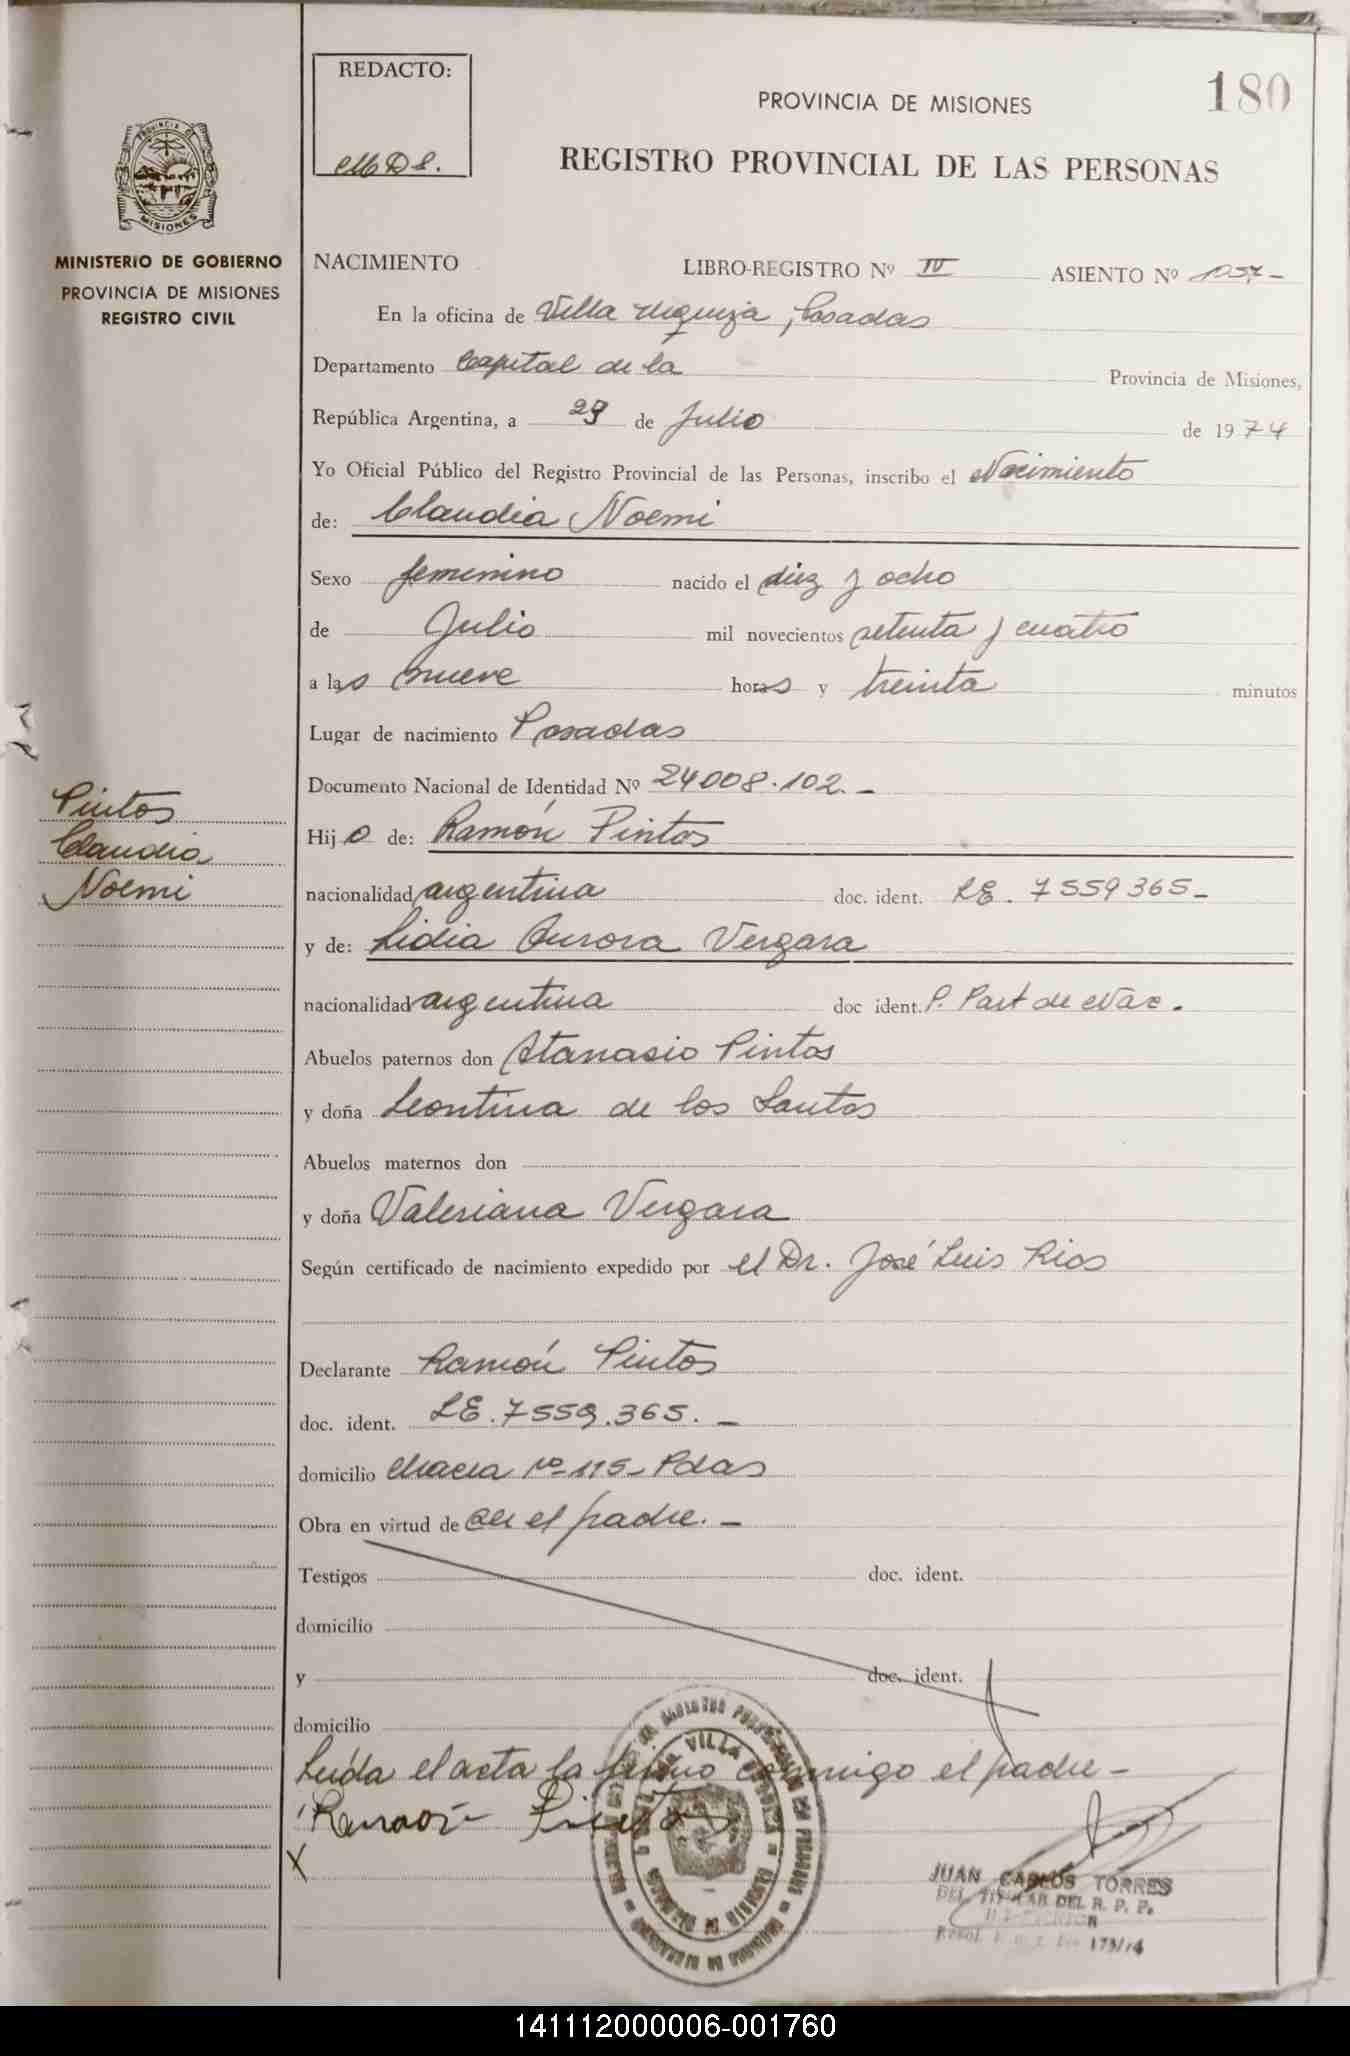 REDACTO:
180
PROVINCIA DE MISIONES
REGISTRO PROVINCIAL DE LAS PERSONAS
PROVINCIA DE
MISIONES
MINISTERIO DE GOBIERNO
PROVINCIA DE MISIONES
REGISTRO CIVIL
NACIMIENTO LIBRO-REGISTRO Nº IV ASIENTO Nº 1057-
En la oficina de Villa Urquiza, Posadas
Departamento Capital de la Provincia de Misiones,
República Argentina, a 29 de Julio de 1974
Yo Oficial Público del Registro Provincial de las Personas, inscribo el Nacimiento
de: Claudia Noemi
Sexo femenino nacido el diez y ocho
de Julio mil novecientos setenta y cuatro
a las nueve horas y treinta minutos
Lugar de nacimiento Posadas
Documento Nacional de Identidad Nº 24008.102.-
Pintos
Claudia
Noemi
Hijo de: Ramón Pintos
nacionalidad argentina doc. ident. LE. 7559365-
y de: Lidia Aurora Vergara
nacionalidad argentina doc ident. P. Part de Nac.
Abuelos paternos don Atanasio Pintos
y doña Leontina de los Santos
Abuelos maternos don
y doña Valeriana Vergara
Según certificado de nacimiento expedido por el Dr. José Luis Rios
Declarante Ramón Pintos
doc. ident. LE. 7559.365.-
domicilio Chacra Nº 115- Pdas
Obra en virtud de ser el padre.-
Testigos doc. ident.
domicilio
y doc. ident.
domicilio
Leída el acta la firmo conmigo el padre-
Ramón Pintos
JUAN CARLOS TORRES
DEL. TITULAR DEL R. P. P.
173/74
141112000006-001760